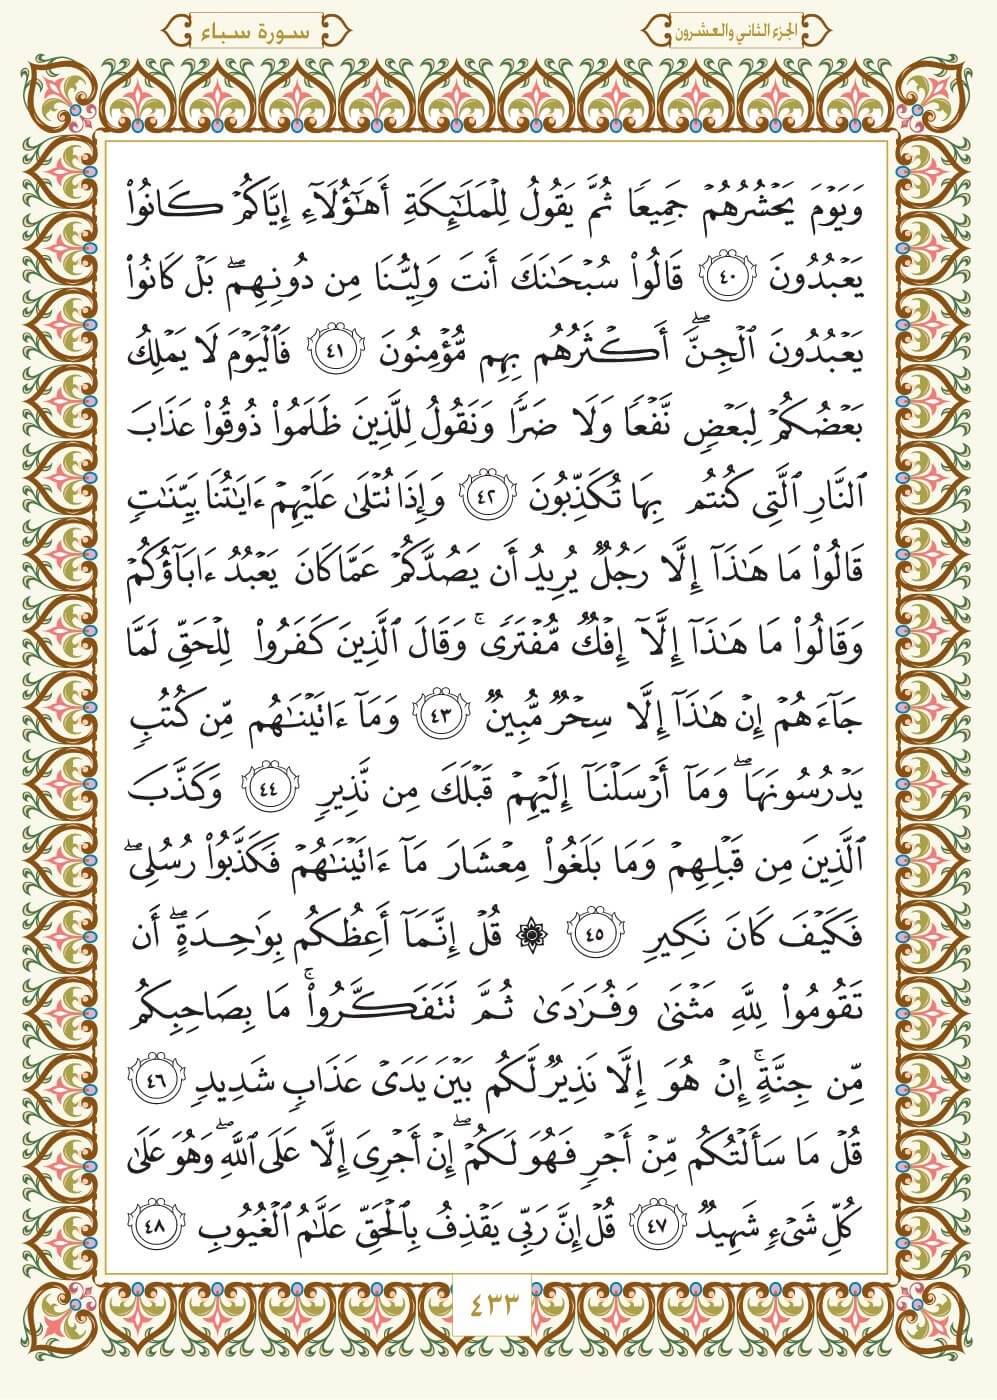 الجزء الثاني والعشرون
سورة سباء
وَيَوْمَ يَحْشُرُهُمْ جَمِيعًا ثُمَّ يَقُولُ لِلْمَلَٰٓئِكَةِ أَهَٰٓؤُلَآءِ إِيَّاكُمْ كَانُوا۟
يَعْبُدُونَ ٤٠ قَالُوا۟ سُبْحَٰنَكَ أَنتَ وَلِيُّنَا مِن دُونِهِم ۖ بَلْ كَانُوا۟
يَعْبُدُونَ ٱلْجِنَّ ۖ أَكْثَرُهُم بِهِم مُّؤْمِنُونَ ٤١ فَٱلْيَوْمَ لَا يَمْلِكُ
بَعْضُكُمْ لِبَعْضٍ نَّفْعًا وَلَا ضَرًّا وَنَقُولُ لِلَّذِينَ ظَلَمُوا۟ ذُوقُوا۟ عَذَابَ
ٱلنَّارِ ٱلَّتِى كُنتُم بِهَا تُكَذِّبُونَ ٤٢ وَإِذَا تُتْلَىٰ عَلَيْهِمْ ءَايَٰتُنَا بَيِّنَٰتٍ
قَالُوا۟ مَا هَٰذَآ إِلَّا رَجُلٌ يُرِيدُ أَن يَصُدَّكُمْ عَمَّا كَانَ يَعْبُدُ ءَابَآؤُكُمْ
وَقَالُوا۟ مَا هَٰذَآ إِلَّآ إِفْكٌ مُّفْتَرًى ۚ وَقَالَ ٱلَّذِينَ كَفَرُوا۟ لِلْحَقِّ لَمَّا
جَآءَهُمْ إِنْ هَٰذَآ إِلَّا سِحْرٌ مُّبِينٌ ٤٣ وَمَآ ءَاتَيْنَٰهُم مِّن كُتُبٍ
يَدْرُسُونَهَا ۖ وَمَآ أَرْسَلْنَآ إِلَيْهِمْ قَبْلَكَ مِن نَّذِيرٍ ٤٤ وَكَذَّبَ
ٱلَّذِينَ مِن قَبْلِهِمْ وَمَا بَلَغُوا۟ مِعْشَارَ مَآ ءَاتَيْنَٰهُمْ فَكَذَّبُوا۟ رُسُلِى ۖ
فَكَيْفَ كَانَ نَكِيرِ ٤٥ ۞ قُلْ إِنَّمَآ أَعِظُكُم بِوَٰحِدَةٍ ۖ أَن
تَقُومُوا۟ لِلَّهِ مَثْنَىٰ وَفُرَٰدَىٰ ثُمَّ تَتَفَكَّرُوا۟ ۚ مَا بِصَاحِبِكُم
مِّن جِنَّةٍ ۚ إِنْ هُوَ إِلَّا نَذِيرٌ لَّكُم بَيْنَ يَدَىْ عَذَابٍ شَدِيدٍ ٤٦
قُلْ مَا سَأَلْتُكُم مِّنْ أَجْرٍ فَهُوَ لَكُمْ ۖ إِنْ أَجْرِىَ إِلَّا عَلَى ٱللَّهِ ۖ وَهُوَ عَلَىٰ
كُلِّ شَىْءٍ شَهِيدٌ ٤٧ قُلْ إِنَّ رَبِّى يَقْذِفُ بِٱلْحَقِّ عَلَّٰمُ ٱلْغُيُوبِ ٤٨
٤٣٣